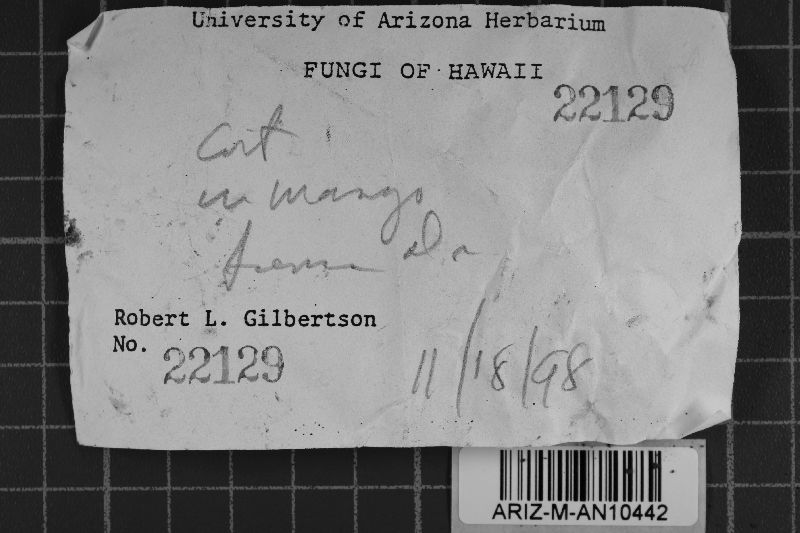 University of Arizona Herbarium
FUNGI OF HAWAII
22129
Cort
on mango
Robert L. Gilbertson
No. 22129
11/18/98
ARIZ-M-AN10442